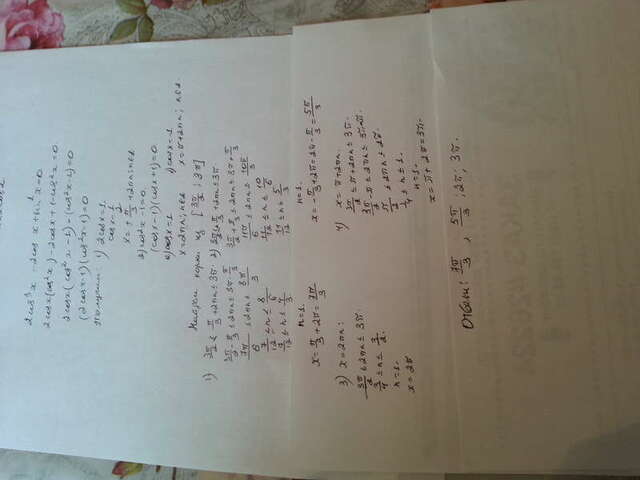 2cos³x - 2cos x + sin²x = 0
2cosx(cos²x) - 2cosx + 1 - cos²x = 0
2cosx(cos²x - 1) - (cos²x - 1) = 0
(2cosx - 1)(cos²x - 1) = 0
1) 2cosx = 1
cosx = 1/2
x = ± π/3 + 2πn; n∈Z
2) cos²x - 1 = 0
(cosx - 1)(cosx + 1) = 0
а) cosx = 1
x = 2πn; n∈Z
б) cosx = -1
x = π + 2πn; n∈Z
Найдем корни из [3π/2; 3π]
1) 3π/2 ≤ π/3 + 2πn ≤ 3π
3π/2 - π/3 ≤ 2πn ≤ 3π - π/3
7π/6 ≤ 2πn ≤ 8π/3
7/12 ≤ n ≤ 8/6
7/12 ≤ n ≤ 4/3
n = 1.
x = π/3 + 2π = 7π/3
2)
3π/2 + π/3 ≤ 2πn ≤ 3π + π/3
11π/6 ≤ 2πn ≤ 10π/3
11/12 ≤ n ≤ 10/6
11/12 ≤ n ≤ 5/3
n = 1.
x = -π/3 + 2π = 2π - π/3 = 5π/3
3) x = 2πn;
3π/2 ≤ 2πn ≤ 3π
3/4 ≤ n ≤ 3/2
n = 1.
x = 2π
4) x = π + 2πn.
3π/2 ≤ π + 2πn ≤ 3π.
π/2 ≤ 2πn ≤ 2π.
1/4 ≤ n ≤ 1.
n = 1.
x = π + 2π = 3π.
Ответ: 7π/3; 5π/3; 2π; 3π.